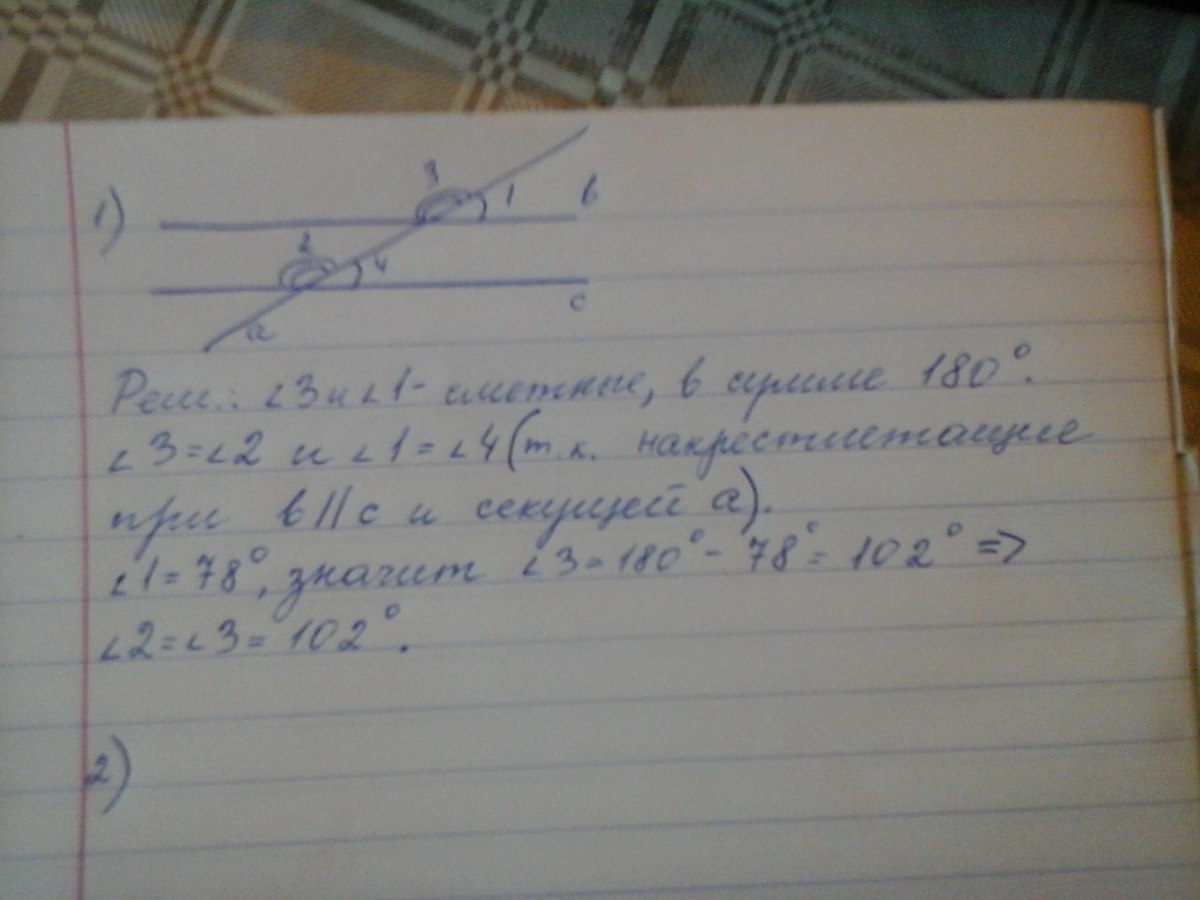 1)
3
1
b
2
4
c
a
Реш.: ∠3 и ∠1 - сметные, в сумме 180°.
∠3=∠2 и ∠1=∠4 (т.к. накрестлетащие
при b||c и секущей a).
∠1=78°, значит ∠3=180°-78°=102° =>
∠2=∠3=102°.
2)